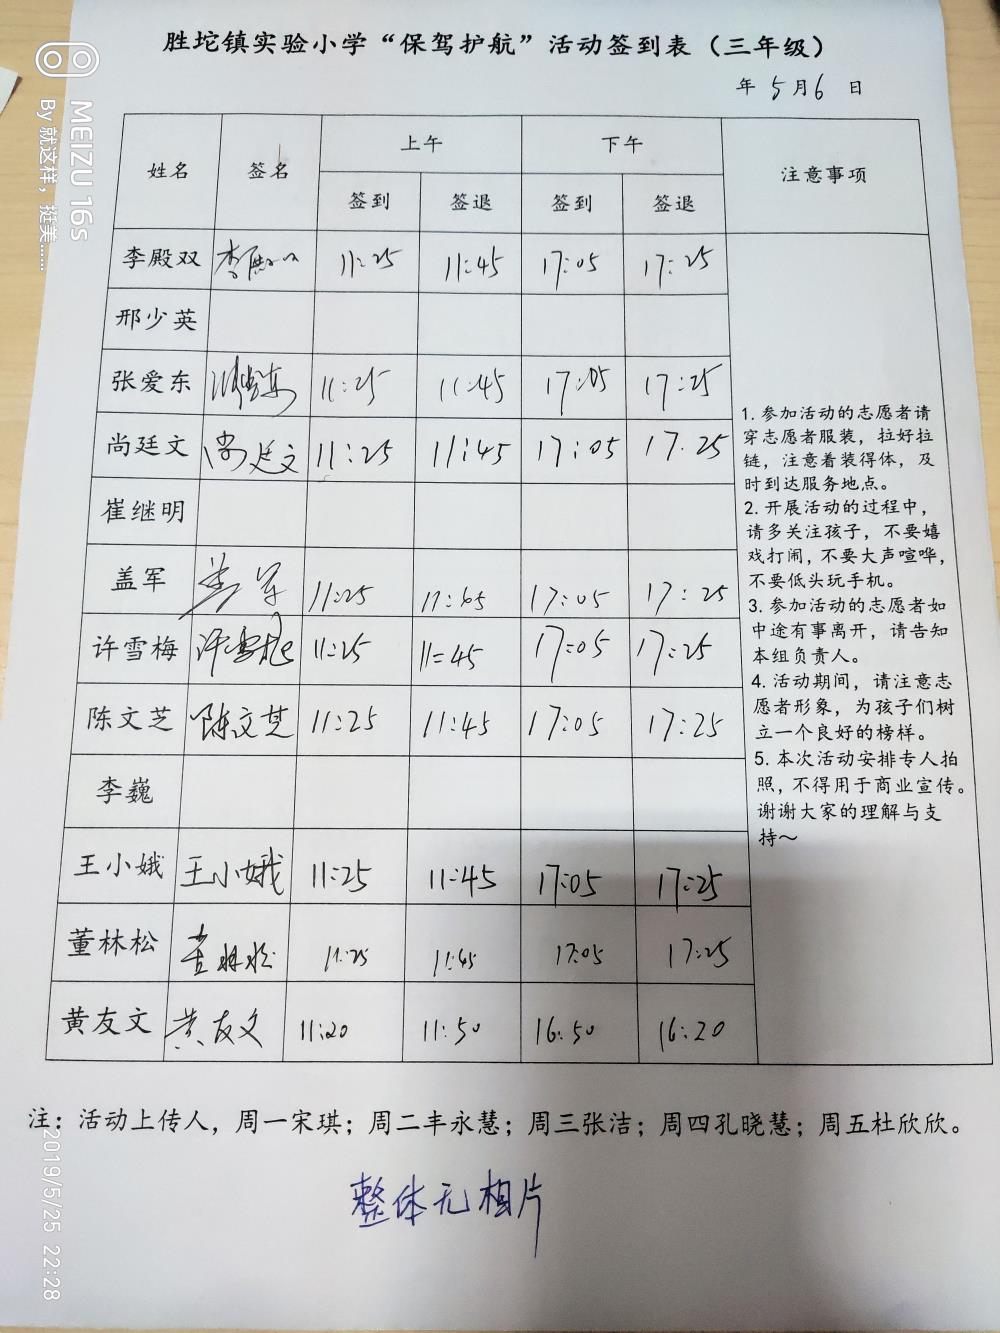 胜坨镇实验小学“保驾护航”活动签到表（三年级）
年 5月6 日
姓名 签名 上午 下午 注意事项
签到 签退 签到 签退
李殿双 李殿双 11:25 11:45 17:05 17:25
邢少英
张爱东 张爱东 11:25 11:45 17:05 17:25
尚廷文 尚廷文 11:25 11:45 17:05 17.25
崔继明
盖军 盖军 11:25 17:05 17:25
许雪梅 许雪梅 11:25 11=45 17:05 17:25
陈文芝 陈文芝 11:25 11:45 17:05 17:25
李巍
王小娥 王小娥 11:25 11:45 17:05 17:25
董林松 董林松 11:25 11:45 17:05 17:25
黄友文 黄友文 11:20 11:50 16:50 16:20
1. 参加活动的志愿者请
穿志愿者服装，拉好拉
链，注意着装得体，及
时到达服务地点。
2. 开展活动的过程中，
请多关注孩子，不要嬉
戏打闹，不要大声喧哗，
不要低头玩手机。
3. 参加活动的志愿者如
中途有事离开，请告知
本组负责人。
4. 活动期间，请注意志
愿者形象，为孩子们树
立一个良好的榜样。
5. 本次活动安排专人拍
照，不得用于商业宣传。
谢谢大家的理解与支
持～
注：活动上传人，周一宋琪；周二丰永慧；周三张洁；周四孔晓慧；周五杜欣欣。
整体无相片
MEIZU 16s
By 就这样，挺美……
2019/5/25 22:28